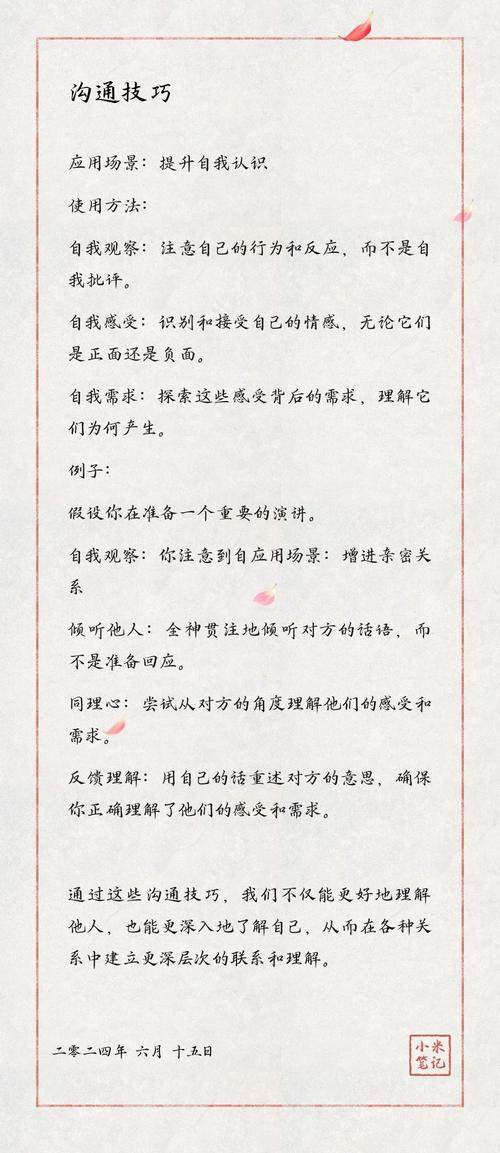 沟通技巧
应用场景：提升自我认识
使用方法：
自我观察：注意自己的行为和反应，而不是自
我批评。
自我感受：识别和接受自己的情感，无论它们
是正面还是负面。
自我需求：探索这些感受背后的需求，理解它
们为何产生。
例子：
假设你在准备一个重要的演讲。
自我观察：你注意到自应用场景：增进亲密关
系
倾听他人：全神贯注地倾听对方的话语，而
不是准备回应。
同理心：尝试从对方的角度理解他们的感受和
需求。
反馈理解：用自己的话重述对方的意思，确保
你正确理解了他们的感受和需求。
通过这些沟通技巧，我们不仅能更好地理解
他人，也能更深入地了解自己，从而在各种关
系中建立更深层次的联系和理解。
二零二四年 六月 十五日
小米
笔记